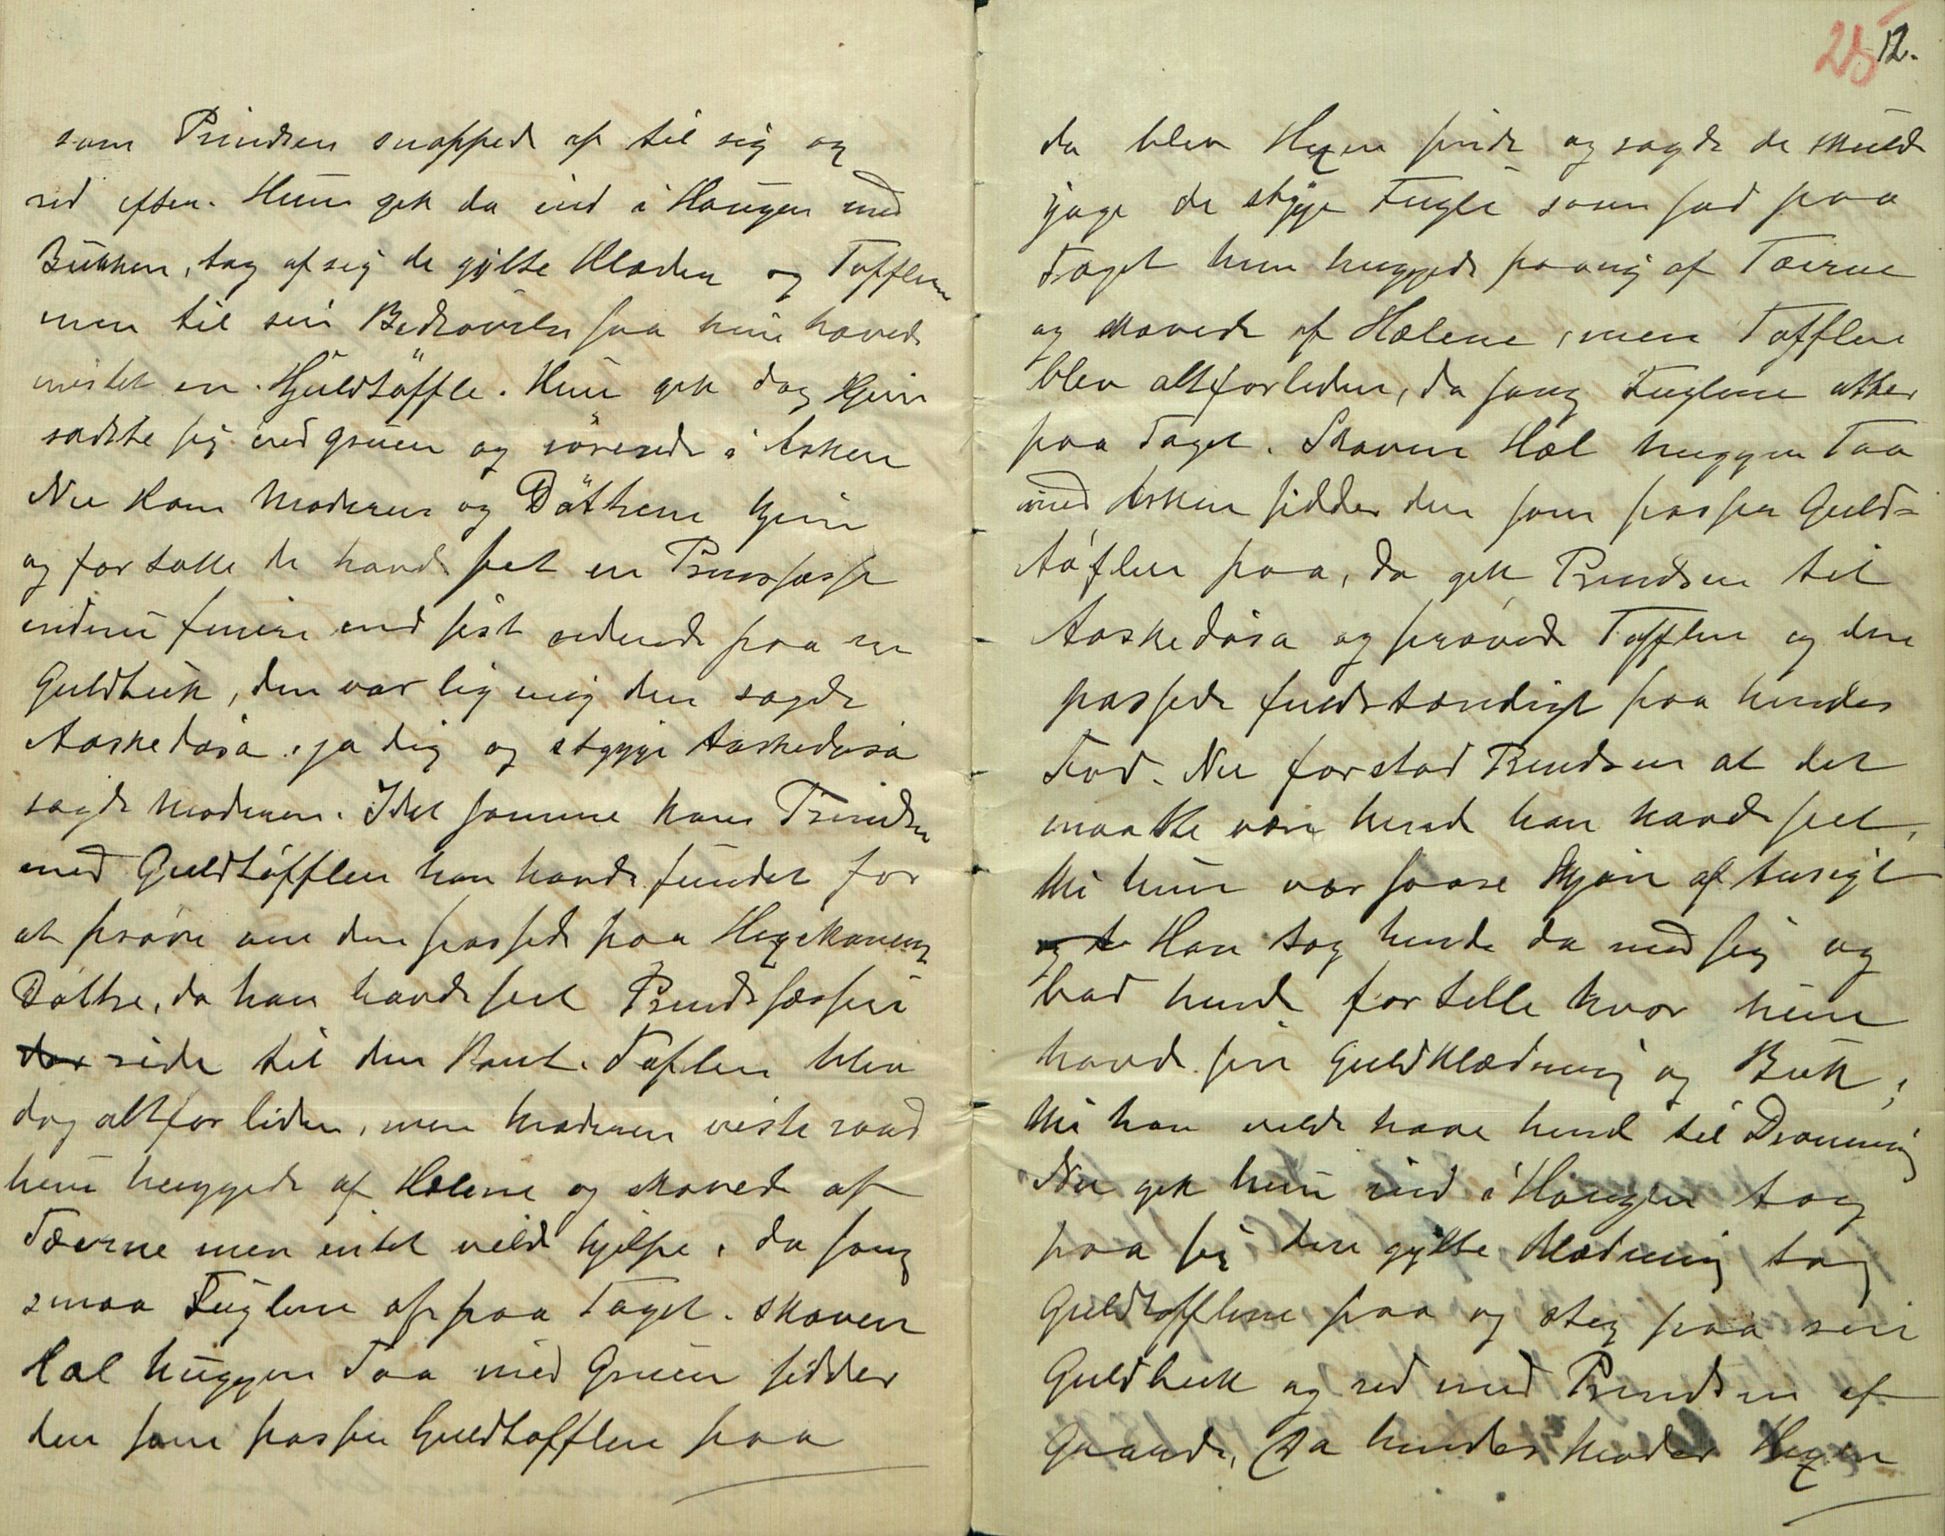 som Prindsen snapped af til sig og
red efter. Hun gek da ind i Haugen med
Bukken, tog af sig de gylte Klæder og Tofflen
men til sin Bedrøvelse saa hun havde
mistet en Guldtöffle. Hun gek dog Hjem
sadste sig ved gruen og i Asken
Nu kom Moderen og Döttrene hjem
og fortalte de havde set en Prinsesse
endnu finere end sist ridende paa en
Guldbuk, den var lig mig den sagde
Aaskedåsa, ja dig og stygge Aaskedåsa
sagde Moderen. I det samme kom Prindsen
med Guldtöfflen han havde fundet for
at prøve om den passede paa Hexekonens
Döttre, da han havde seet Prindsessen
der ride til den Kant. Toflen blev
dog altfor liden, men Moderen viste raad
hun huggede af Hælene og skavede af
Tærne men intet vilde hjelpe, da sang
smaa Fuglene op paa Taget. Skaven
Hæl huggen Taa med Gruen sidder
den som passer Guldtofflen paa
25 12.
da blev Hexen sinde og sagde de skulde
jage de stygge Fugle som sad paa
Taget hun huggede paany af Tærne
og skavede af Hælene, men Tofflen
blev altforliden, da sang Fuglene atter
paa Taget. Skaven Hæl huggen Taa
med Asken sidder den som passer Guld-
töflen paa, da gek Prindsen til
Aaskedåsa og prövede Tofflen og den
passede fuldstændigt paa hendes
Fod. Nu forstod Prindsen at det
maatte være hende han havde seet,
thi hun var saare skjön af Ansigt
og Han tog hende da med sig og
bad hende fortelle hvor hun
havde sin Guldklædning og Buk,
thi han vilde have hende til Dronning
Nu gek hun ind i Haugen tog
paa sig den gylte Klædning tog
Guldtofflene paa og steg paa sin
Guldbuk og red med Prindsen af
Gaarde, Da hendes Moder Hexen